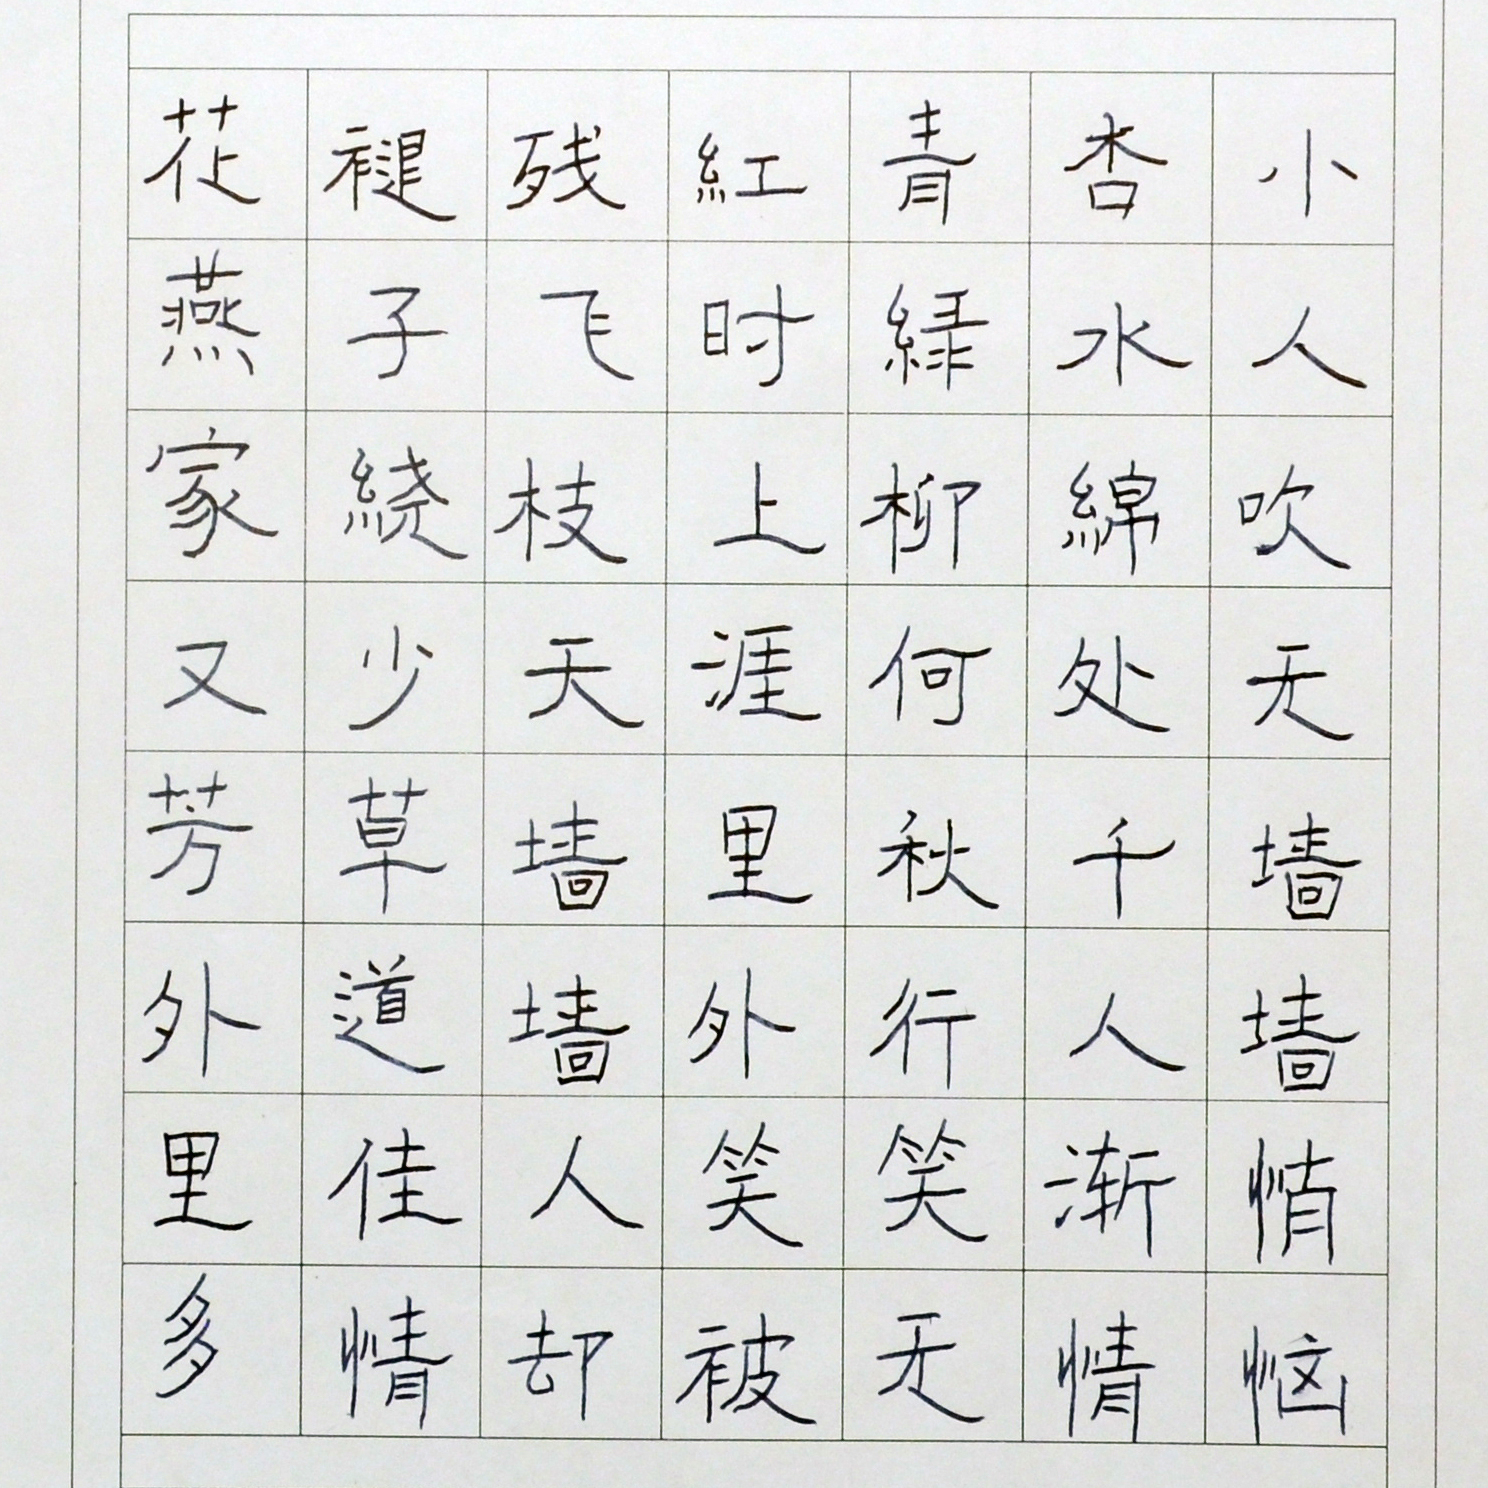 花褪残紅青杏小
燕子飞时緑水人
家绕枝上柳綿吹
又少天涯何处无
芳草墙里秋千墙
外道墙外行人墙
里佳人笑笑渐悄
多情却被无情恼